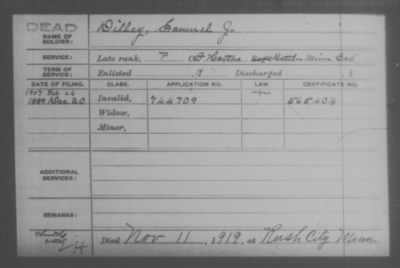 DEAD
NAME OF SOLDIER: Dilley, Samuel J.
SERVICE: Late rank, P Co Hatchs Minn Cav
TERM OF SERVICE: Enlisted Discharged
DATE OF FILING. CLASS. APPLICATION NO. LAW. CERTIFICATE NO.
1907 Feb
1889 Dec 20 Invalid, 744709
Widow,
Minor,
ADDITIONAL SERVICES:
REMARKS:
Died Nov 11, 1919, at Rush City Minn